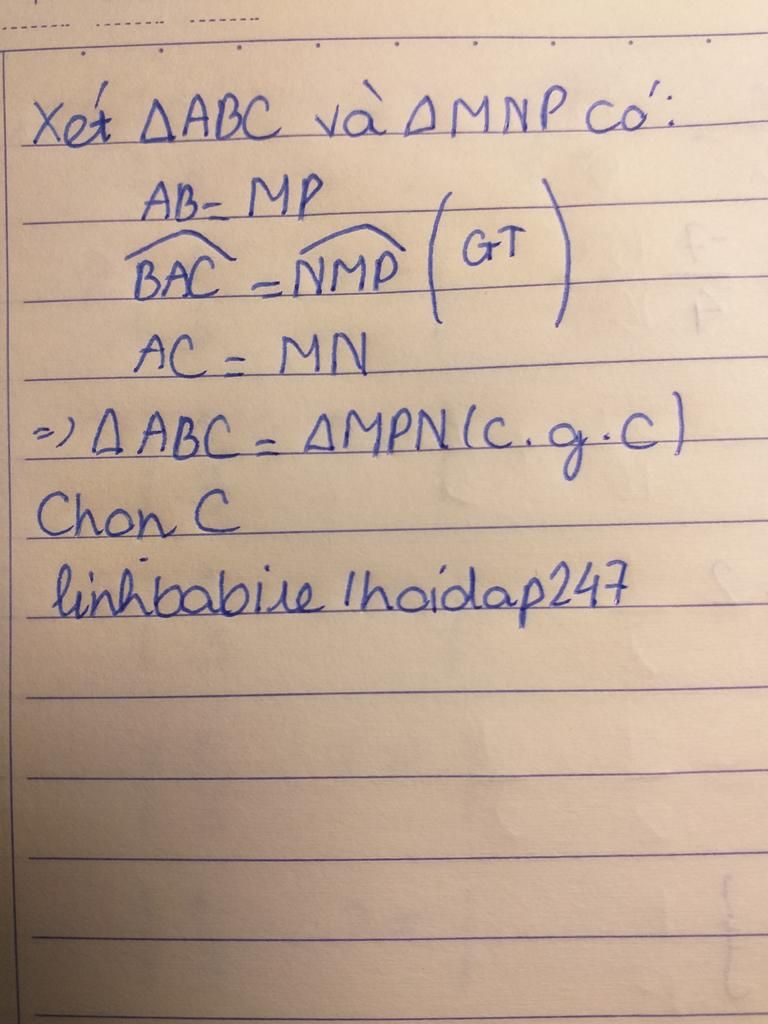 Xét ΔABC và ΔMNP có:
AB = MP
BAC = NMP (GT)
AC = MN
=> ΔABC = ΔMPN (c.g.c)
Chon C
linhbabie /hoidap247